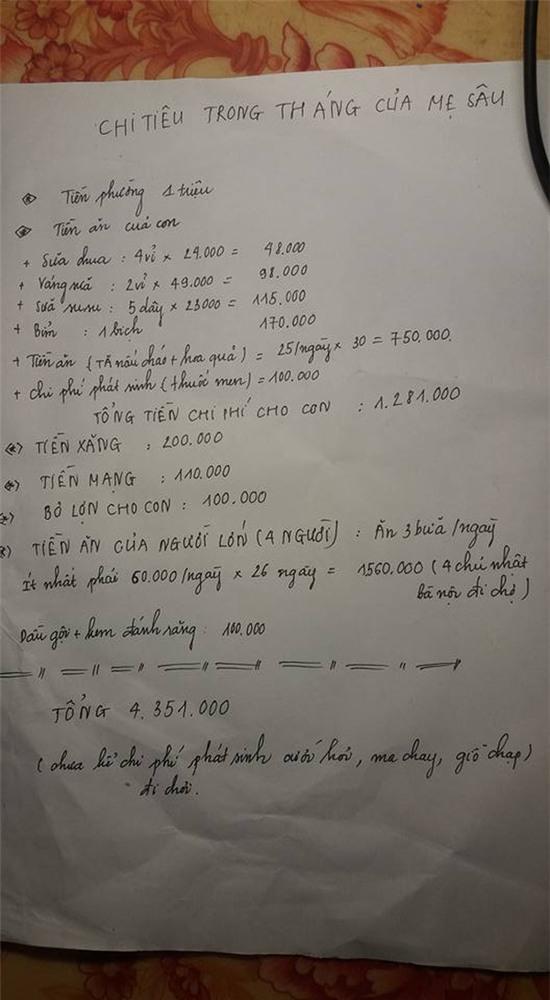 CHI TIÊU TRONG THÁNG CỦA MẸ SÂU
Tiền phường 1 triệu
Tiền ăn của con
+ Sữa chua : 4 vỉ × 24.000 = 48.000
+ Váng sữa : 2 vỉ × 49.000 = 98.000
+ Sữa susu : 5 dây × 23000 = 115.000
+ Bỉm : 1 bịch 170.000
+ Tiền ăn (TĂ nấu cháo + hoa quả) = 25/ngày × 30 = 750,000.
+ chi phí phát sinh (thuốc men) = 100.000
TỔNG TIỀN CHI PHÍ CHO CON : 1.281.000
(*) TIỀN XĂNG : 200.000
(*) TIỀN MẠNG : 110.000
*) BỎ LỢN CHO CON : 100.000
*) TIỀN ĂN CỦA NGƯỜI LỚN (4 NGƯỜI) : Ăn 3 bữa/ngày
ít nhất phải 60.000/ngày × 26 ngày = 1560.000 (4 chủ nhật
bà nội đi chợ)
Dầu gội + kem đánh răng : 100.000
TỔNG 4.351.000
(chưa kể chi phí phát sinh cưới hỏi, ma chay, giỗ chạp)
đi chơi.